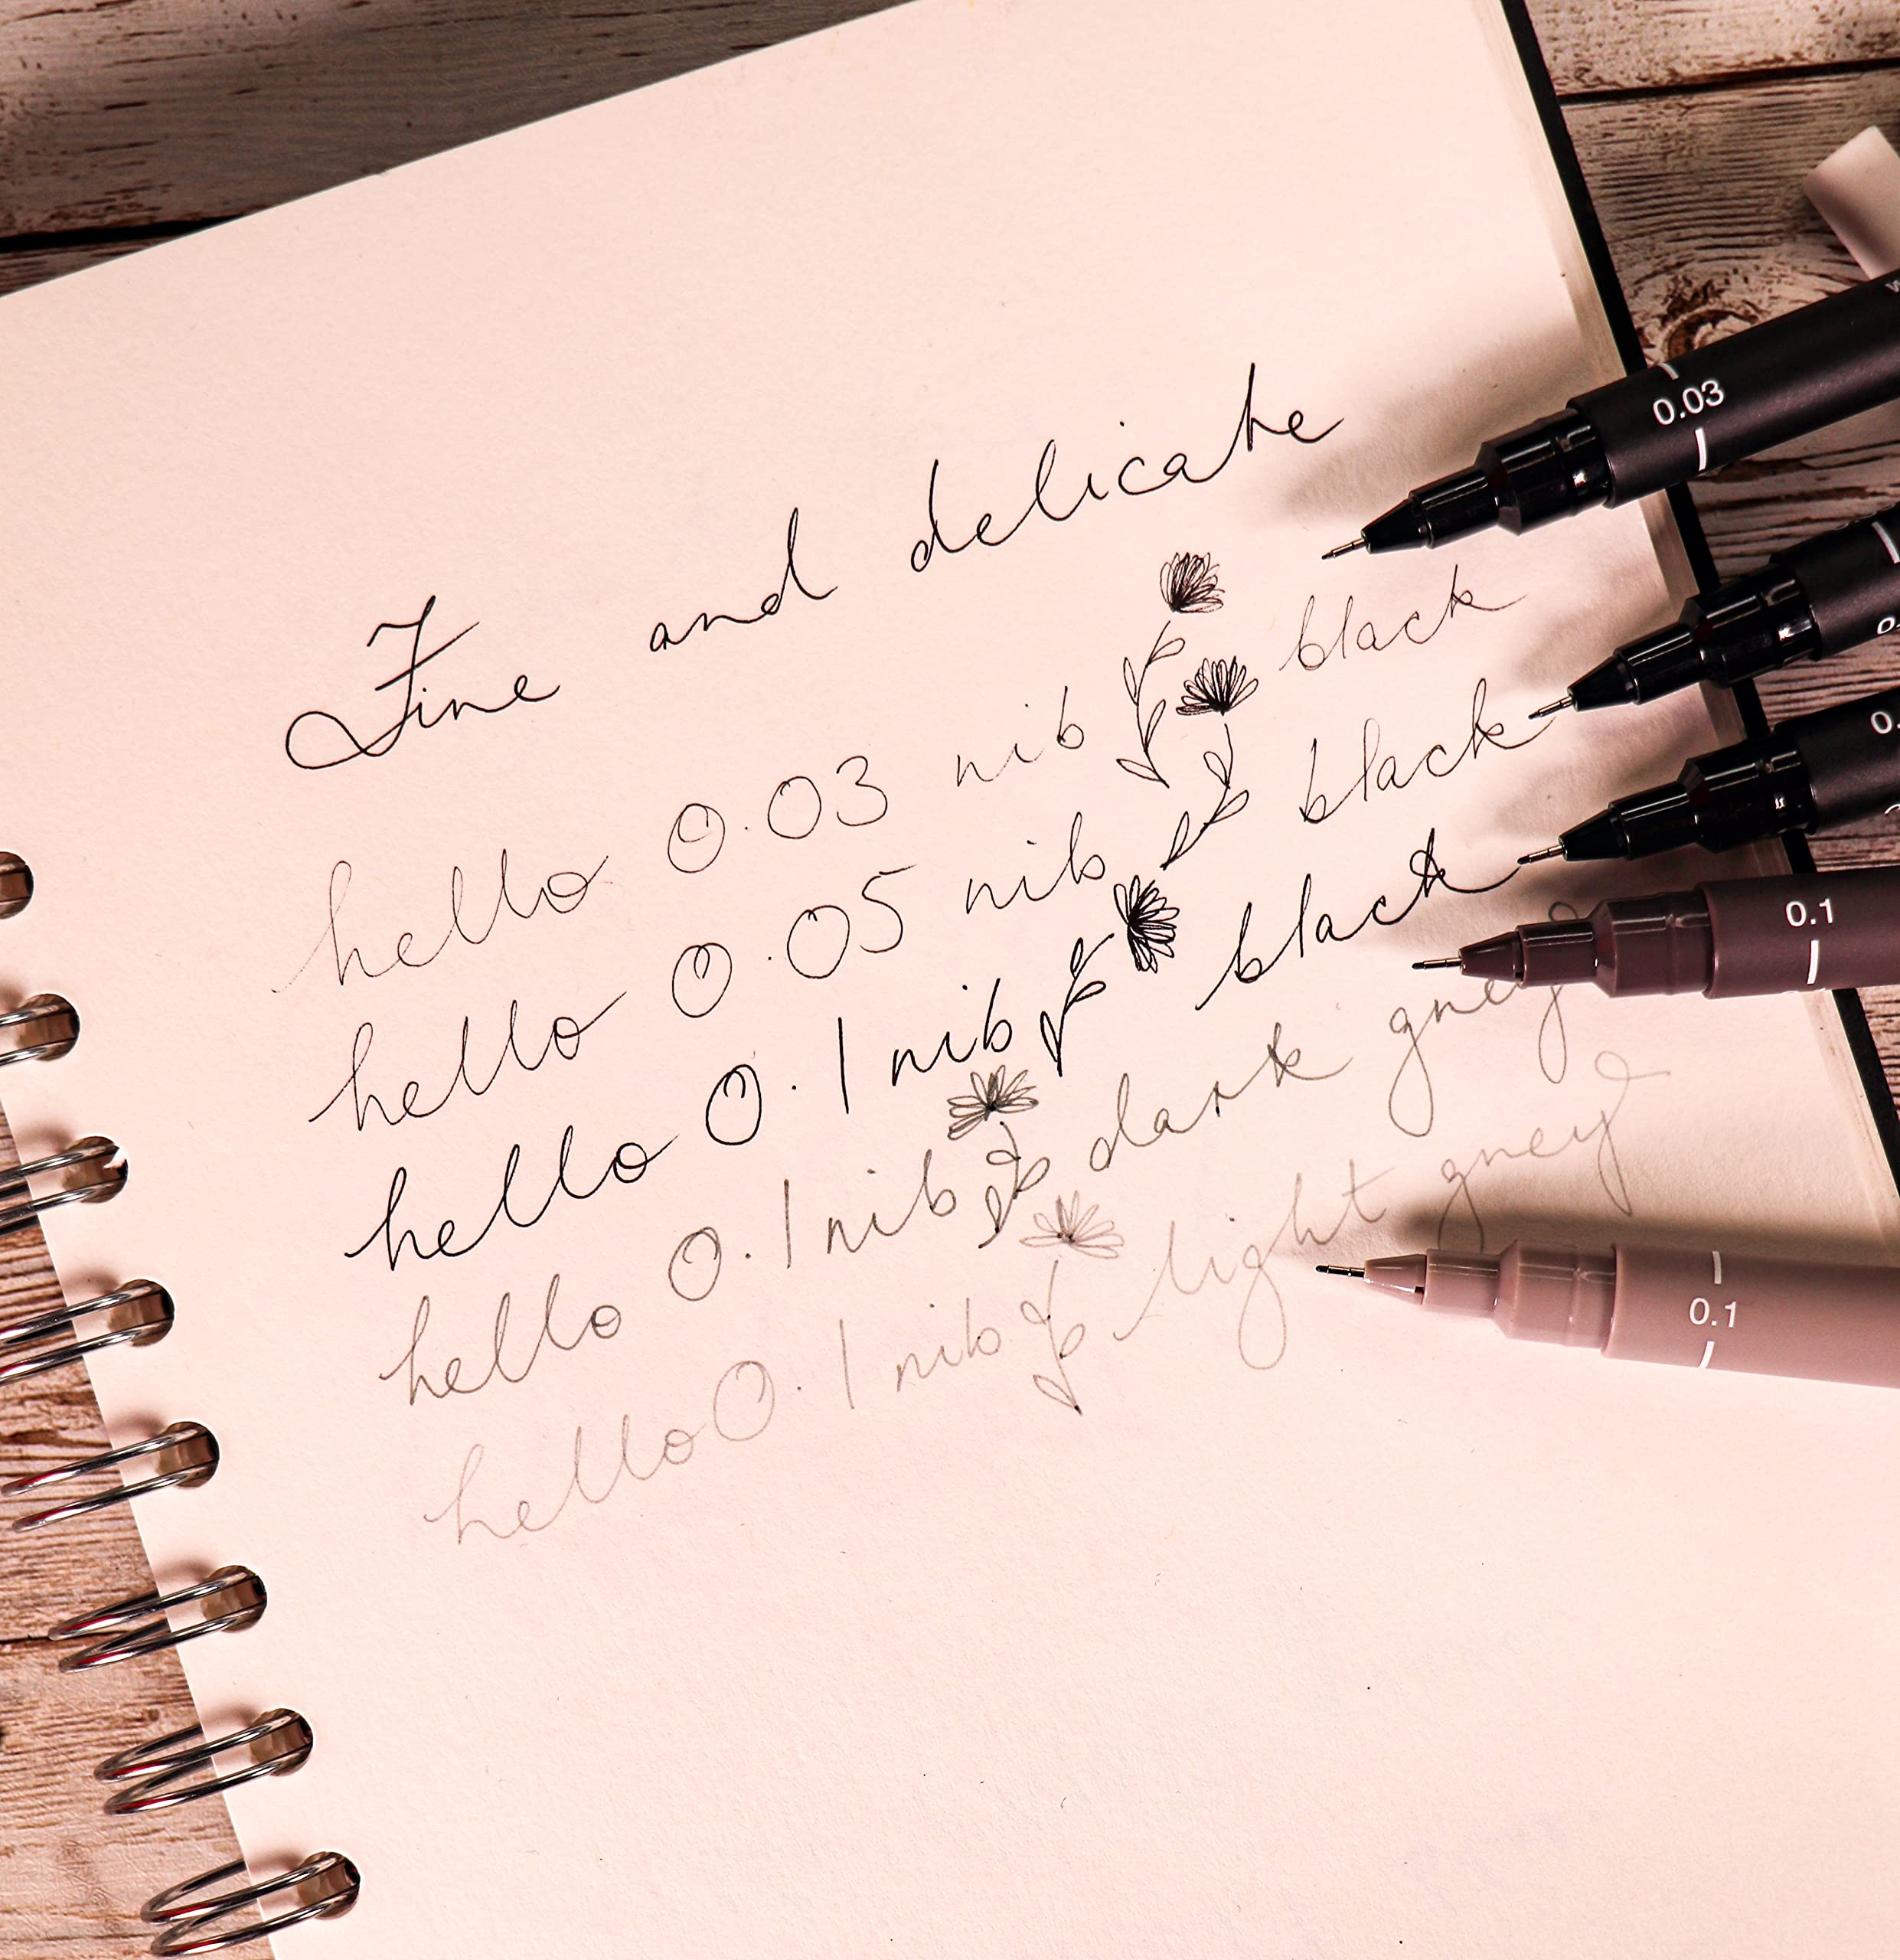 Fine and delicate
hello 0.03 nib black
hello 0.05 nib black
hello 0.1 nib black
hello 0.1 nib dark grey
hello 0.1 nib light grey
0.03
0.1
0.1